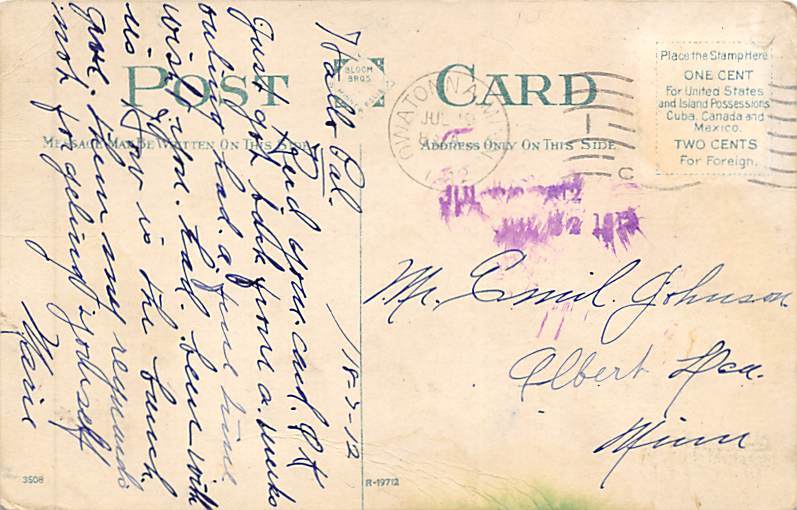 POST CARD
BLOCH BROS.
MESSAGE MAY BE WRITTEN ON THIS SIDE
ADDRESS ONLY ON THIS SIDE
OWATONNA, MINN
JUL 19
1912
C
Place the Stamp Here
ONE CENT
For United States
and Island Possessions
Cuba, Canada and
Mexico.
TWO CENTS
For Foreign.
18-7-12
Hallo Pal.
Recd your card. OK
Just got back from a weeks
outing had a fine time
wish you had been with
us How is the bunch
give them my regards
not forgeting yourself
Mr. Emil. Johnson
Albert Lea.
Minn
3508
R-19712